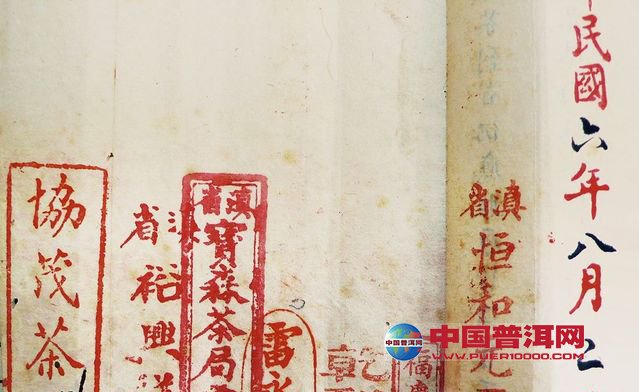 民國六年八月
滇省
恒和元
福
乾
雷永
滇省
寶森茶局
滇省
裕興
協茂茶
中国普洱网
WWW.PUER10000.COM